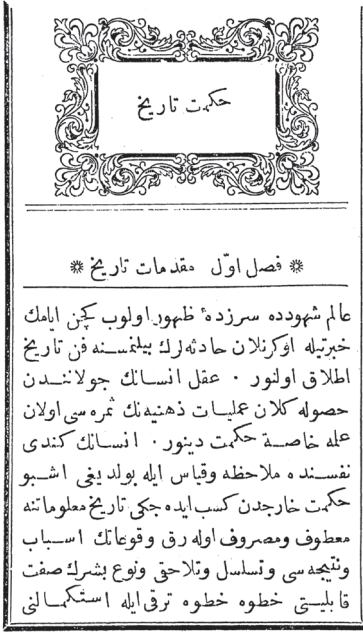 حكمت تاريخ
فصل اوّل مقدمات تاريخ
عالم شهودده سرزدهٔ ظهور اولوب كچن ايامك
خبرتيله اوكرنلان حادثه‌لرك بيلنمسنه فن تاريخ
اطلاق اولنور . عقل انسانك جولانندن
حصوله كلان عمليات ذهنيه‌نك ثمره سی اولان
علمه خاصة حكمت دينور . انسانك كندی
نفسنده ملاحظه وقياس ايله بولديغی اشبو
حكمت خارجدن كسب ايده جكی تاريخ معلوماتنه
معطوف ومصروف اوله رق وقوعاتك اسباب
ونتيجه سی وتسلسل وتلاحقی ونوع بشرك صفت
قابليتی خطوه خطوه ترقی ايله استكمالنی